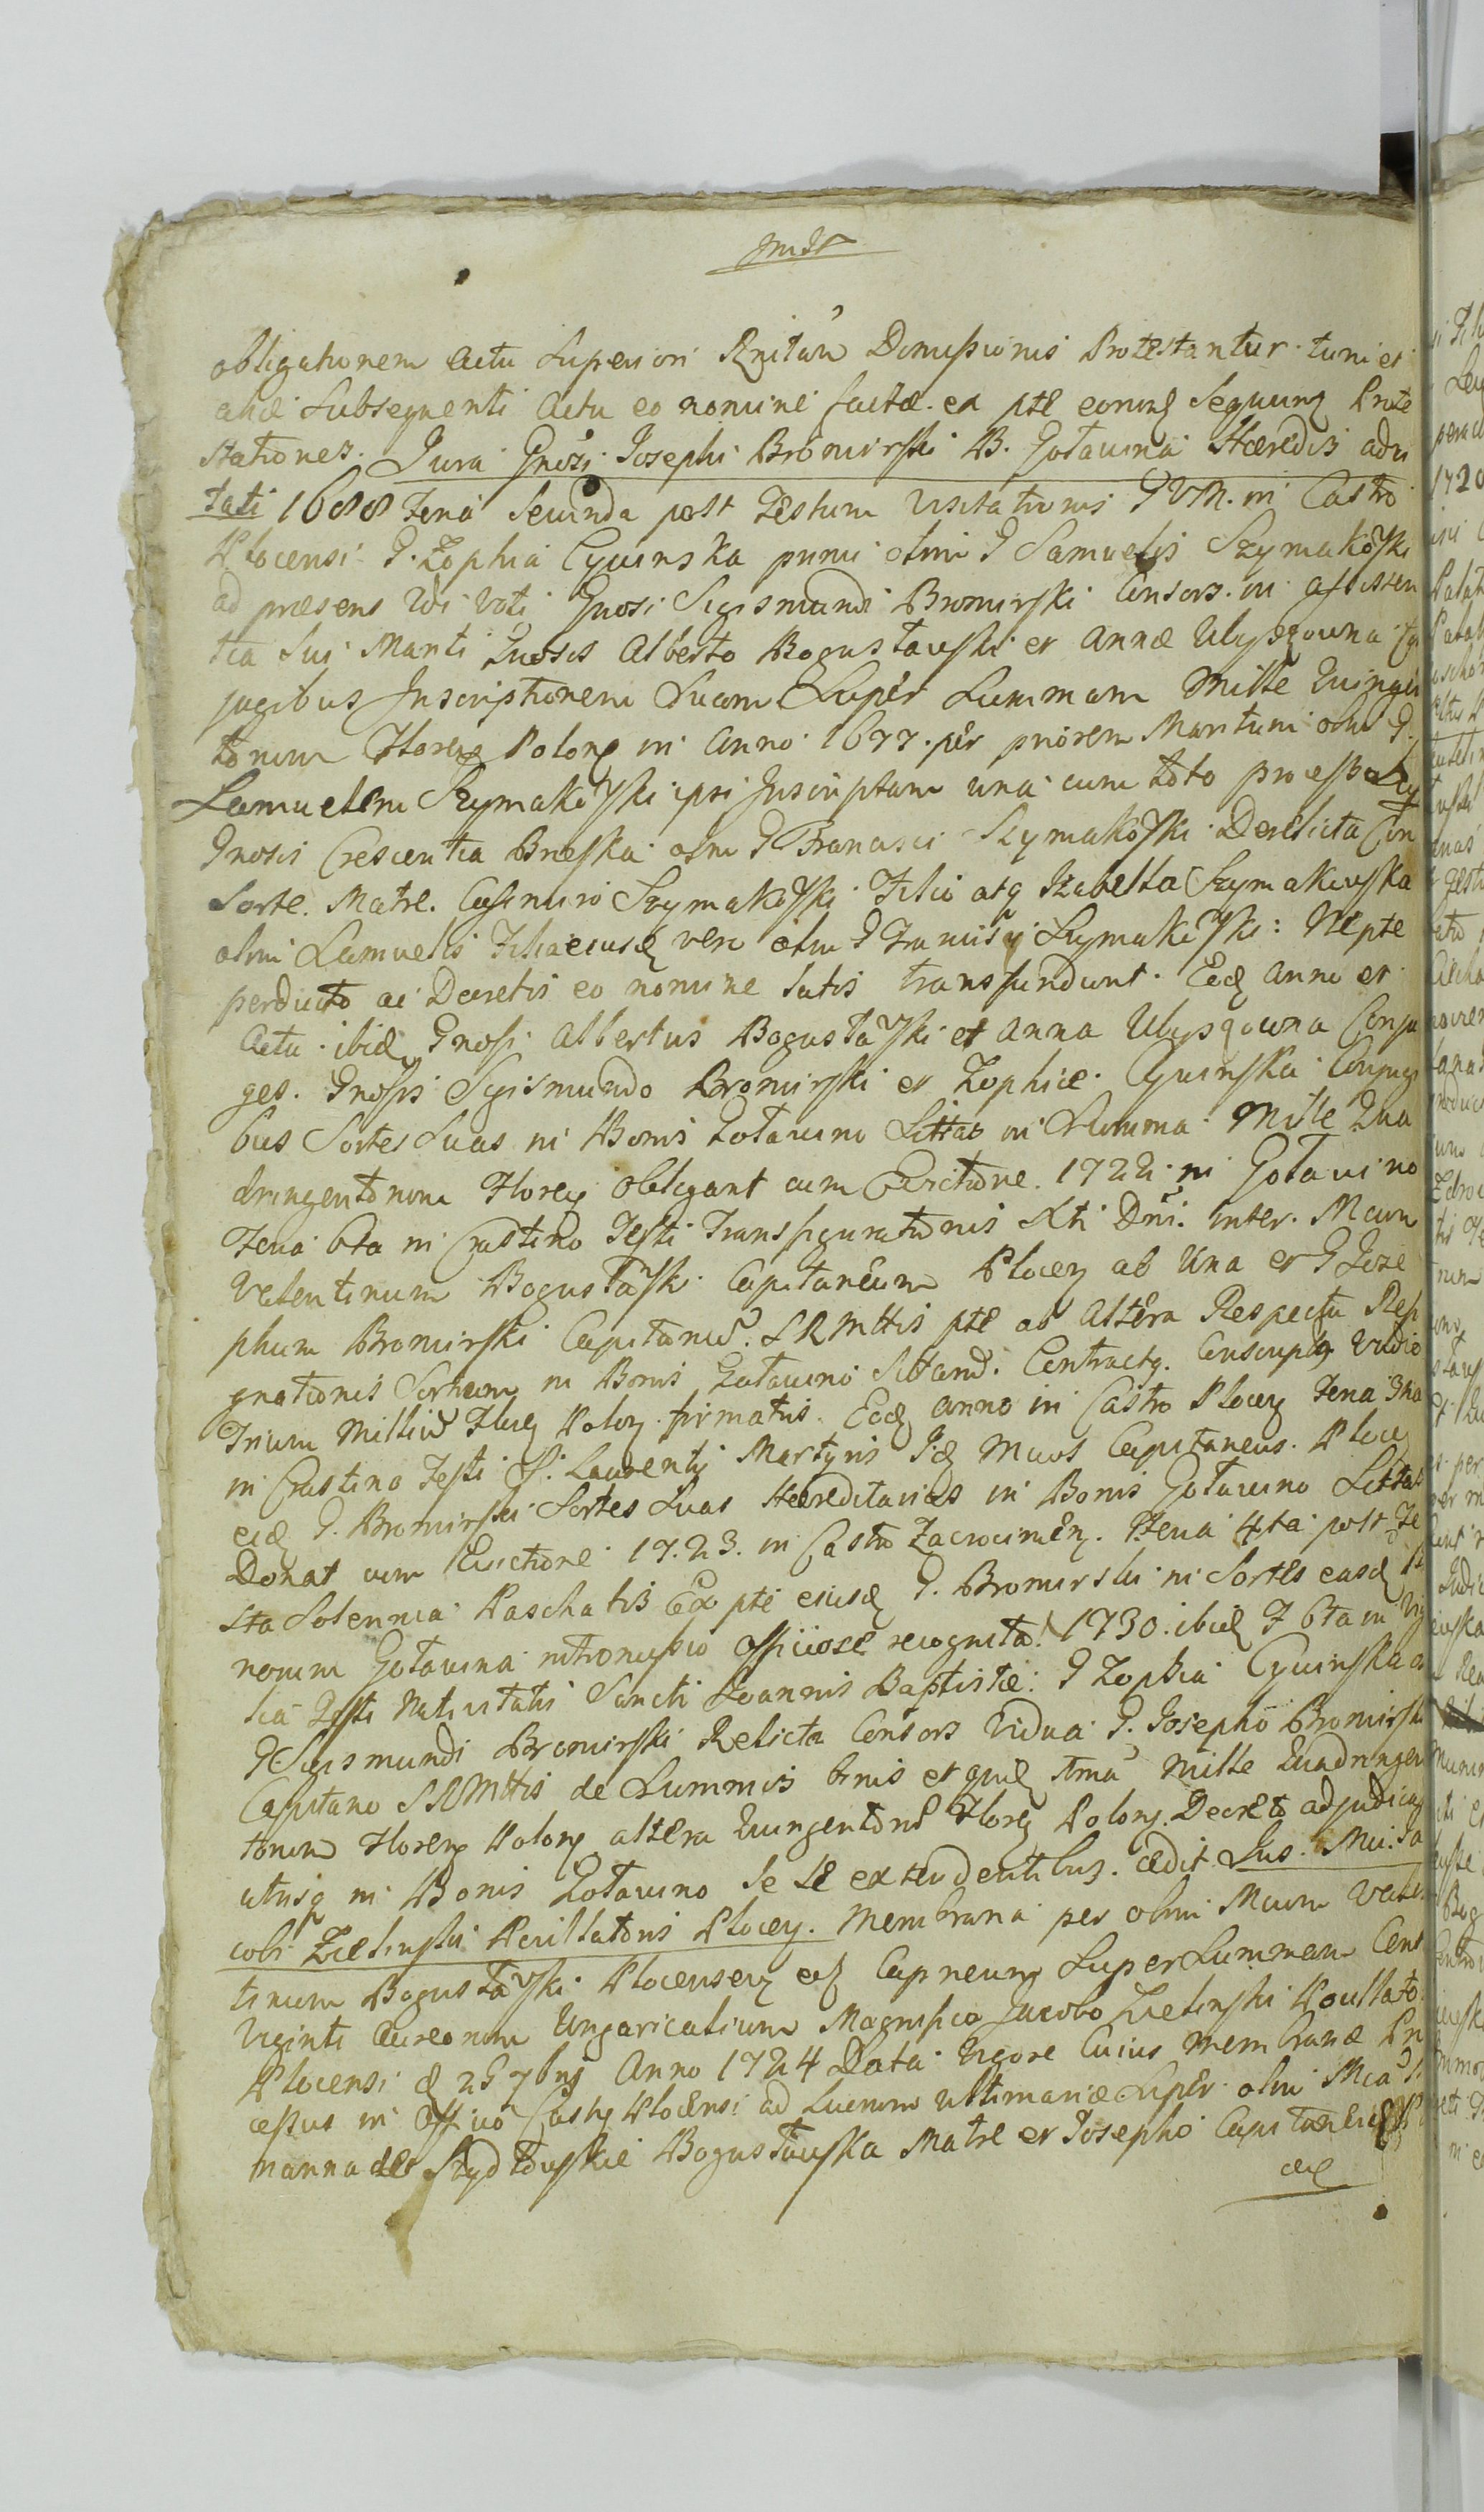 obligationem Actu Superiori Protestantur tum et
aliæ Subsequenti Actu eo nomine factæ ex pte eorund Sequunt Prote
stationes. Jura Gnosi Josephi Bromirski B. Gołauina Hæredis adci
tati 1688 Feria Secunda post Festum Visitationis in Castro
Plocensi G. Zophia Cywinska primi olim G Samuelis Szymakowski
ad præsens 2di Voti Gnosi Sigismundi Bromirski Consors in assisten
tia Sui Mariti Gnosis Alberto Bogusławski et Annæ Con
jugibus Inscriptionem Suam Super Summam Mille Quingen
torum Floren Polon in Anno 1677 per priorem Maritum olim G.
Samuelem Szymakowski ipsi Inscriptam una cum toto processu
Gnosis Crescentia olim G Francisci Szymakowski Derelicta Con
sorte Matre Casimiro Szymakowski Filio atq Izabella Szymakowska
olim Samuelis Filia eiusd vero olim G Francisci Szymakowski Nepte
perducto ac Decretis eo nomine latis transfundunt. Eod Anno et
Actu ibid Gnosi Albertus Bogusławski et Anna Conju
ges Gnosis Sigismundo Bromirski et Zophiæ Cywinska Conjugi
bus Sortes Suas in Bonis Gołauino Sittas in Summa Mille Qua
dringentorum Floren obligant cum Evictione. 1722 in Gołauino
Feria 6ta in Crastino Festi Transfigurationis Xti Dni. inter Mcum
Valentinum Bogusławski Capitaneum Plocen ab Una et G Jose
phum Bromirski Capitaneum S R Mttis pte ab Altera Respectu Resi
gnationis Sortium in Bonis Gołauino Sittand. Contractq Conscripto Vadio
Trium Millium Floren Polon firmatus. Eod anno in Castro Plocen Feria 3tia
in Crastino Festi S. Laurentij Martyris Id Mcus Capitaneus Plocen
eid G. Bromirski Sortes Suas Hæreditarias in Bonis Gołauino Sittas
Donat cum Evictione 1723. in Castro Zacrocimen. Feria 4ta post Fe
sta Solennia Paschatis Ex pte eiusd G. Bromirski in Sortes easd
norum Gołauina intromissio officiose recognita. 1730. ibid F 6ta in Vigi
lia Festi Nativitatis Sancti Joannis Baptistæ G Zophia Cywinska
G Sigismundi Bromirski Relicta Consors Vidua G. Josepho Bromirski
Capitano S R Mttis de Summis binis et quid Mille Quadringen
torum Floren Polon altera Quingentorum Floren Polon. Decreto adjudicat
utrisq in Bonis Gołauino se se extendentibus cedit Jus Mci Ja
cobi Zielinski Pocillatoris Plocen. Membrana per olim Mcum Valen
tinum Bogusławski Plocensem Capneum Super Summam Cent
Viginti Aureorum Ungaricalium Magnifico Jacobo Zielinski Pocillato
Plocensi d 25 7bris Anno 1724 Data Vigore Cuius Membranæ Pro
cessus in Officio Castren Plocensi ad Lucrum Ultimariæ Super olim
Marianna de Szydłowskie Bogusławska Matre et Josepho Capitaneid